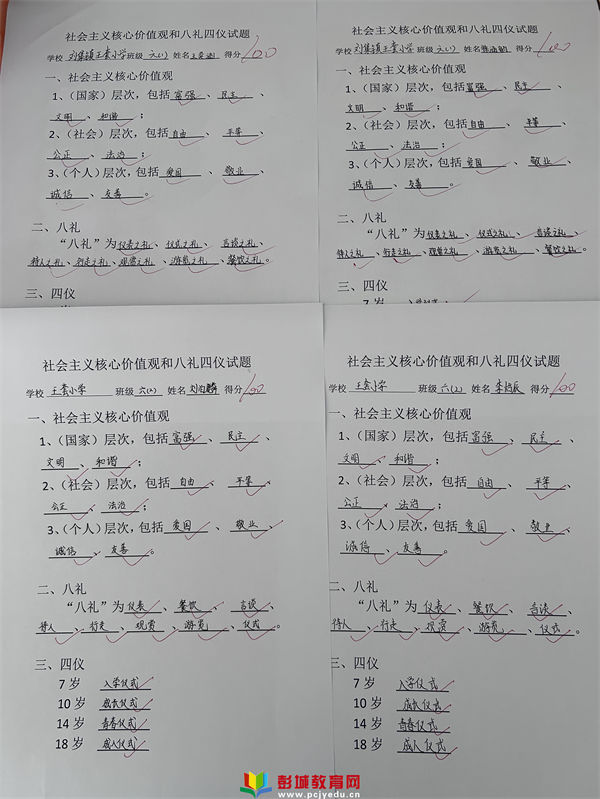 社会主义核心价值观和八礼四仪试题
学校 刘集镇王套小学 班级 六(1) 姓名 得分 100
一、社会主义核心价值观
1、（国家）层次，包括 富强 、 民主 、
文明 、 和谐 ；
2、（社会）层次，包括 自由 、 平等 、
公正 、 法治 ；
3、（个人）层次，包括 爱国 、 敬业 、
诚信 、 友善 。
二、八礼
“八礼”为 仪表之礼 、 仪式之礼 、 言谈之礼 、
待人之礼 、 行走之礼 、 观赏之礼 、 游览之礼 、 餐饮之礼 。
三、四仪
社会主义核心价值观和八礼四仪试题
学校 刘集镇王套小学 班级 六(1) 姓名 得分 100
一、社会主义核心价值观
1、（国家）层次，包括 富强 、 民主 、
文明 、 和谐 ；
2、（社会）层次，包括 自由 、 平等 、
公正 、 法治 ；
3、（个人）层次，包括 爱国 、 敬业 、
诚信 、 友善 。
二、八礼
“八礼”为 仪表之礼 、 仪式之礼 、 言谈之礼 、
待人之礼 、 行走之礼 、 观赏之礼 、 游览之礼 、 餐饮之礼 。
三、四仪
7 岁
社会主义核心价值观和八礼四仪试题
学校 王套小学 班级 六(2) 姓名 得分 100
一、社会主义核心价值观
1、（国家）层次，包括 富强 、 民主 、
文明 、 和谐 ；
2、（社会）层次，包括 自由 、 平等 、
公正 、 法治 ；
3、（个人）层次，包括 爱国 、 敬业 、
诚信 、 友善 。
二、八礼
“八礼”为 仪表 、 餐饮 、 言谈 、
待人 、 行走 、 观赏 、 游览 、 仪式 。
三、四仪
7 岁 入学仪式
10 岁 成长仪式
14 岁 青春仪式
18 岁 成人仪式
社会主义核心价值观和八礼四仪试题
学校 王套小学 班级 六(2) 姓名 得分 100
一、社会主义核心价值观
1、（国家）层次，包括 富强 、 民主 、
文明 、 和谐 ；
2、（社会）层次，包括 自由 、 平等 、
公正 、 法治 ；
3、（个人）层次，包括 爱国 、 敬业 、
诚信 、 友善 。
二、八礼
“八礼”为 仪表 、 餐饮 、 言谈 、
待人 、 行走 、 观赏 、 游览 、 仪式 。
三、四仪
7 岁 入学仪式
10 岁 成长仪式
14 岁 青春仪式
18 岁 成人仪式
彭城教育网
www.pcjyedu.cn